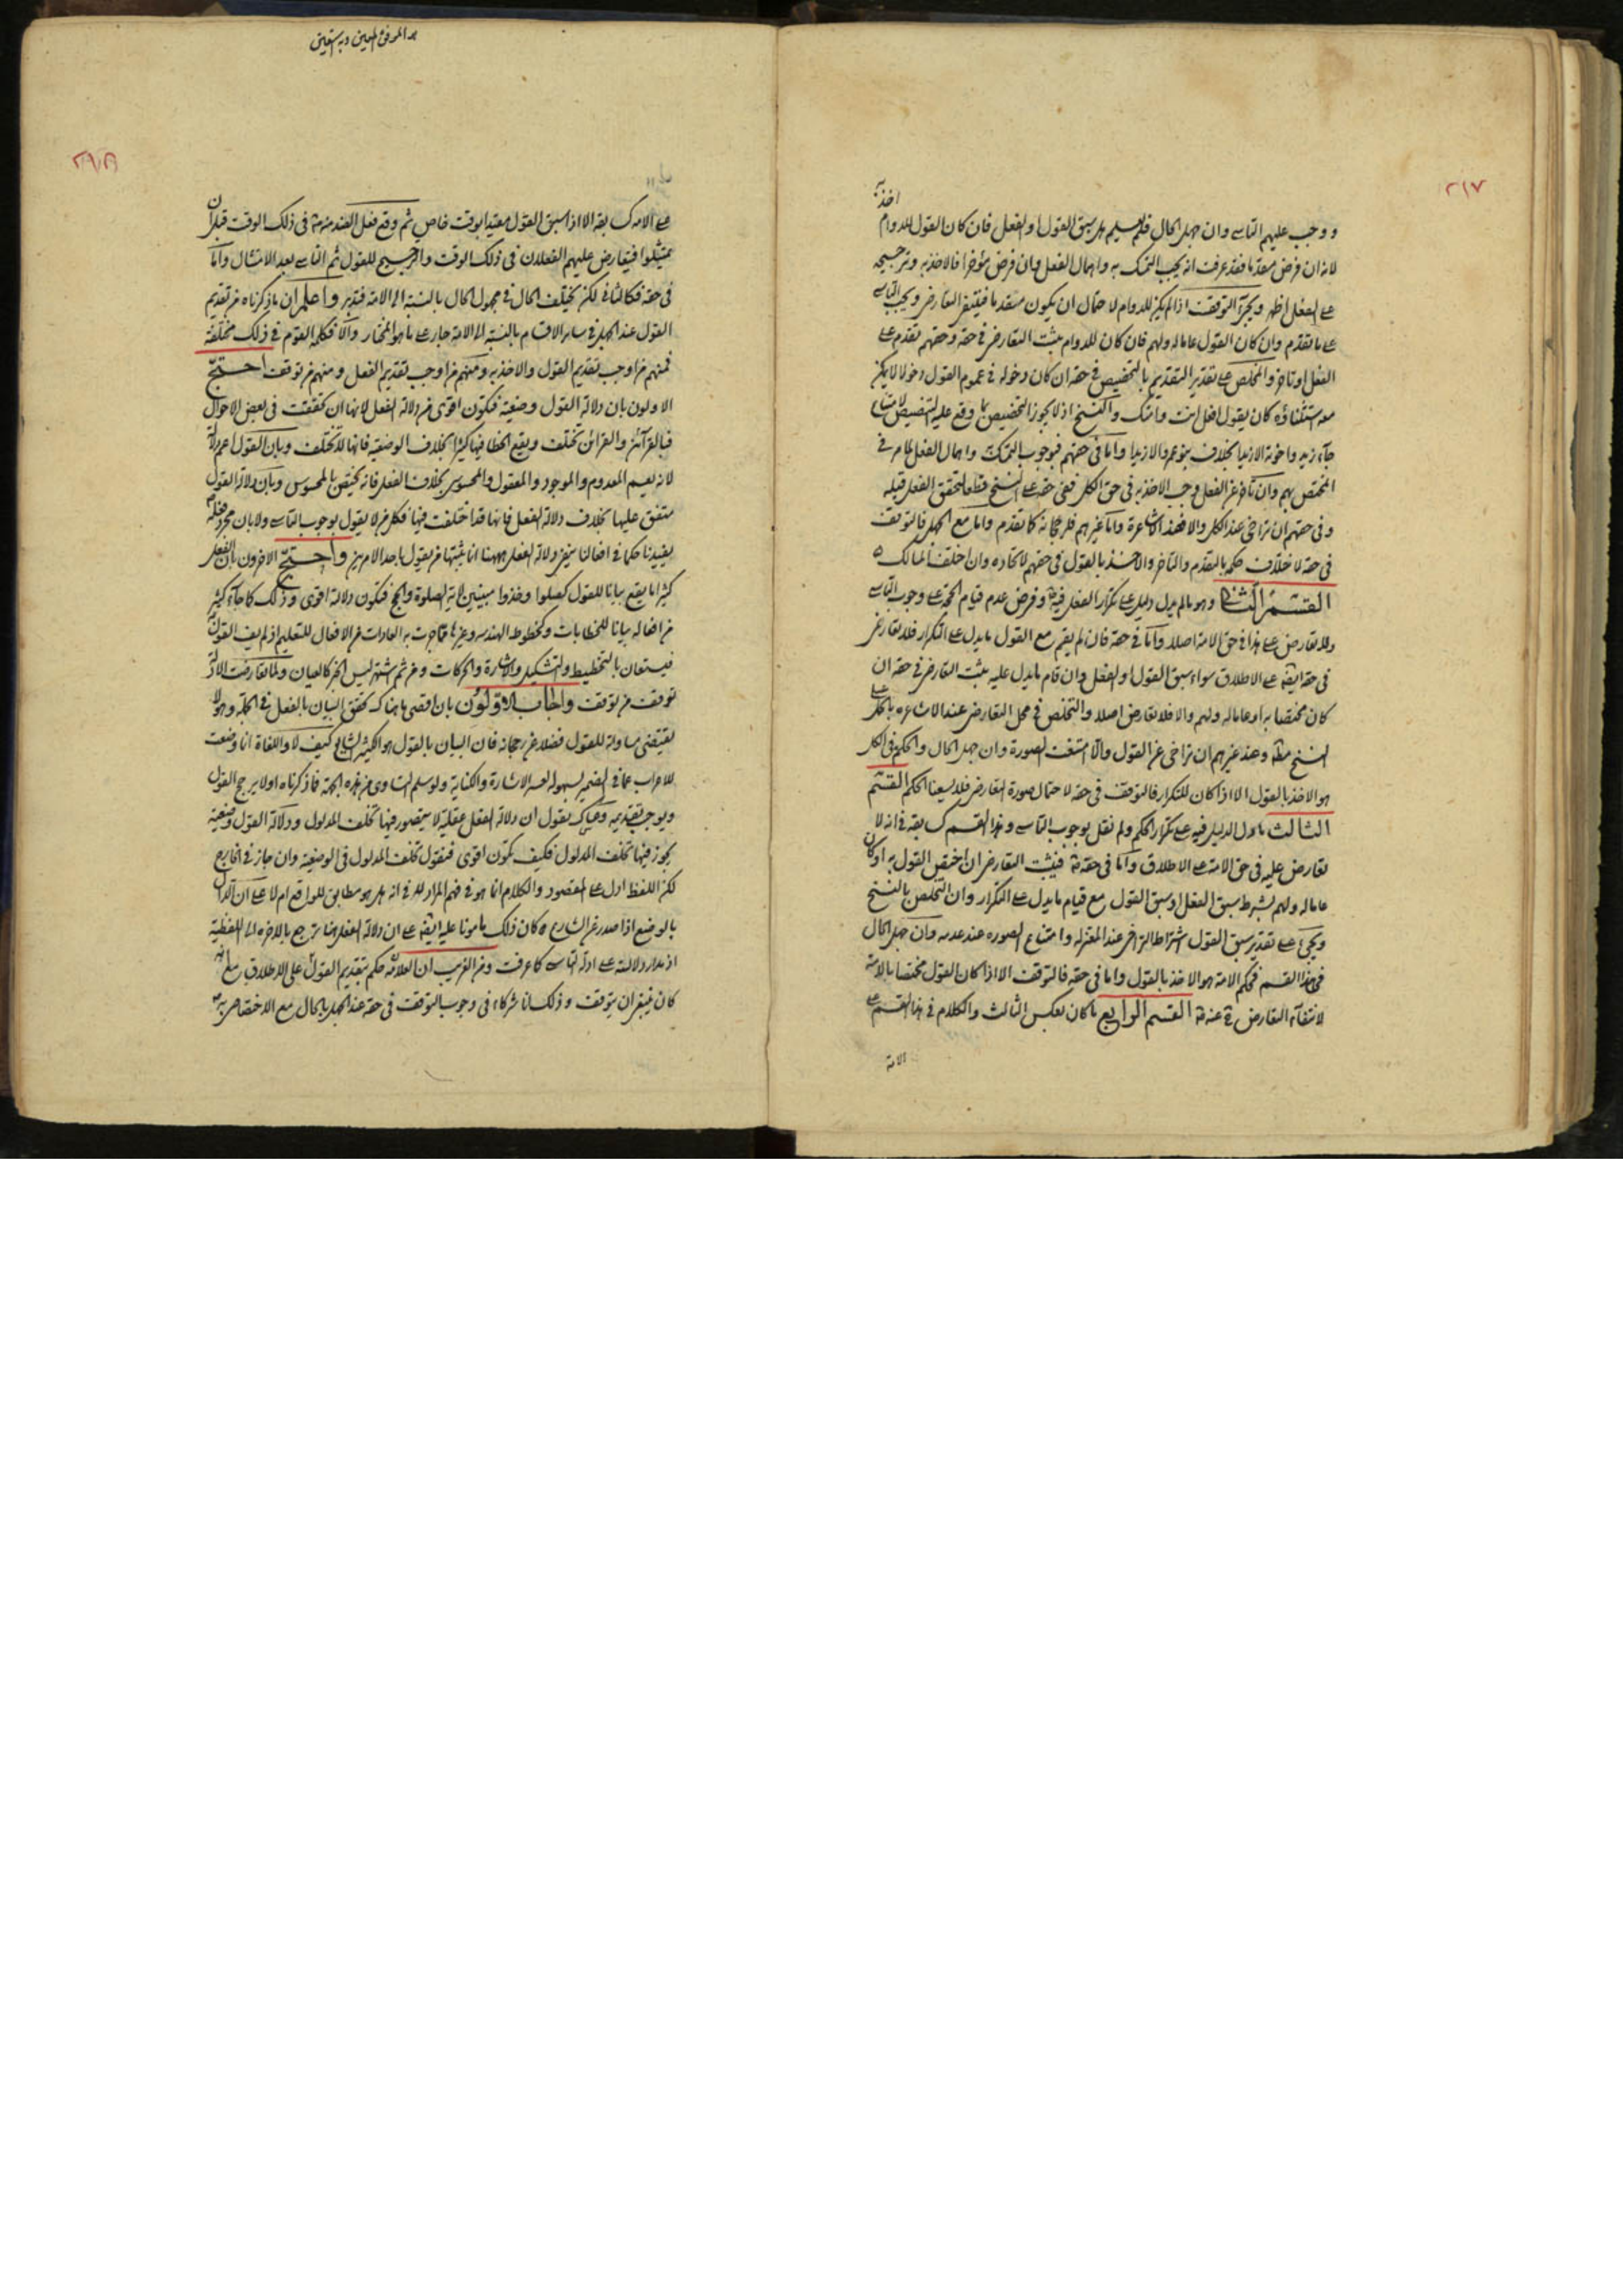 ٢١٧
ووجب عليهم التاسى وان جهل الحال فلم يعلم هل سبق القول او الفعل فان كان القول للدوام
لانه ان فرض متقدما فقد عرفت انه يجب التمسك به واهمال الفعل وان فرض مؤخرا فالاخذ به وترجيحه
على الفعل اظهر التوقف اذا لم يكن للدوام لاحتمال ان يكون متقدما فينتفى التعارض ويجب التاسى
على ما تقدم وان كان القول عاما له ولهم فان كان للدوام يثبت التعارض فى حقه وحقهم تقدم على
الفعل او تاخر والمخلص على تقدير التقديم بالتخصيص فى حقه ان كان دخوله فى عموم القول دخولا لا يمكن
معه استثناؤه كان يقول افعل انت وامتك والنسخ اذ لا يجوز التخصيص وقع عليه التنصيص
جاء زيد واخوته الا زيدا بخلاف بنو عمرو الا زيدا واما فى حقهم فبوجوب التمسك واهمال الفعل لما مر فى
المختص بهم وان تاخر عن الفعل وجب الاخذ به فى حق الكل ففى حقه على النسخ قطعا لتحقق الفعل قبله
وفى حقهم ان تراخى عند الكل والا فعند الاشاعرة واما غيرهم كما تقدم واما مع الجهل فالتوقف
فى حقه لاختلاف حكمه بالتقدم والتاخر والاخذ بالقول فى حقهم لاتحاده وان اختلفت المسالك
القسم الثانى وهو ما لم يدل دليل على تكرار الفعل فيه وفرض عدم قيام الحجة على وجوب التاسى
ولا تعارض على هذا فى حق الامة اصلا واما فى حقه فان لم يقم مع القول ما يدل على التكرار فلا تعارض
فى حقه ايضا على الاطلاق سواء سبق القول او الفعل وان قام ما يدل عليه يثبت التعارض فى حقه ان
كان مختصا به او عاما له ولهم والا فلا تعارض اصلا والتخلص فى محل التعارض عند الاشاعرة
النسخ مطلقا وعند غيرهم ان تراخى عن القول والا امتنعت الصورة وان جهل الحال والحكم فى الكل
هو الاخذ بالقول الا اذا كان للتكرار فالتوقف فى حقه لاحتمال صورة التعارض فلا يسعنا الحكم القسم
الثالث ما دل الدليل فيه على تكرار الحكم ولم نقل بوجوب التاسى وهذا القسم كسابقه فى انه لا
تعارض عليه فى حق الامة على الاطلاق واما فى حقه فيثبت التعارض ان اختص القول به او كان
عاما له ولهم بشرط سبق الفعل او سبق القول مع قيام ما يدل على التكرار وان التخلص بالنسخ
ويجئ على تقدير سبق القول اشتراط التراخى عند المعتزلة وامتناع الصورة عند عدمه وان جهل الحال
فى هذا القسم فحكم الامة هو الاخذ بالقول واما فى حقه فالتوقف الا اذا كان القول مختصا بالامة
لانتفاء التعارض عنه القسم الرابع ما كان بعكس الثالث والكلام فى هذا القسم على
الامة
هو الموفق المعين وبه نستعين
على الامة كسابقه الا اذا سبق القول مقيدا بوقت خاص ثم وقع فعل الضد منه فى ذلك الوقت قبل ان
يمتثلوا فيتعارض عليهم الفعلان فى ذلك الوقت والترجيح للقول ثم التاسى بعد الامتثال واما
فى حقه فكالثانى لكن يختلف الحال فى مجهول الحال بالنسبة الى الامة فتدبر واعلم ان ما ذكرناه من تقديم
القول عند الجهل فى سائر الاقسام بالنسبة الى الامة جار على ما هو المختار والا فكلمة القوم فى ذلك مختلفة
فمنهم من اوجب تقديم القول والاخذ به ومنهم من اوجب تقديم الفعل ومنهم من توقف احتج
الاولون بان دلالة القول وضعية فتكون اقوى من دلالة الفعل لانها ان تحققت فى بعض الاحوال
فبالقرائن والقرائن تختلف ويقع الخطا فيها كثيرا بخلاف الوضعية فانها لا تختلف وبان القول اعم دلالة
لانه يعم المعدوم والموجود والمعقول والمحسوس بخلاف الفعل فانه يختص بالمحسوس وبان دلالة القول
متفق عليها بخلاف دلالة الفعل فانها قد اختلفت فيها فكل من لا يقول بوجوب التاسى ولا بان مجرد فعله
يفيدنا حكما فى افعالنا ينفى دلالة الفعل هيهنا انما يثبتها من يقول باحد الامرين واحتج الاخرون بان الفعل
كثيرا ما يقع بيانا للقول كصلوا وخذوا مبينين لاية الصلوة والحج فتكون دلالته اقوى وذلك كما جاء كثير
من افعاله بيانا للخطابات وكخطوط الهندسة وغيرها مما جرت به العادات من الافعال للتعليم اذ لم يف القول
فيستعان بالتخطيط والتشكيل والاشارة والحركات ومن ثم اشتهر ليس الخبر كالعيان ولما تعارضت الادلة
توقف من توقف واجاب الاولون بان اقصى ما هناك تحقق البيان بالفعل فى الجملة وهو لا
يقتضى مساواته للقول فضلا عن رجحانه فان البيان بالقول هو الكثير الشايع كيف لا واللغات انما وضعت
للاعراب عما فى الضمير لسهولة الاشارة والكناية ولو سلم التساوى من هذه الجهة فما ذكرناه اولا يرجح القول
ويوجب تقديمه وعساك تقول ان دلالة الفعل عقلية لا يتصور فيها تخلف المدلول ودلالة القول وضعية
يجوز فيها تخلف المدلول فكيف تكون اقوى فنقول تخلف المدلول فى الوضعية وان جاز فى الخارج
لكن اللفظ ادل على المقصود والكلام انما هو فى فهم المراد لا فى انه هل هو مطابق للواقع ام لا على ان الدال
بالوضع اذا صدر عن الشارع كان ذلك مامونا عليه ايضا على ان دلالة الفعل هنا ترجع بالاخرة الى اللفظية
اذ مدار دلالته على ادلة التاسى كما عرفت ومن الغريب ان العلامة حكم بتقديم القول على الاطلاق مع انه
كان ينبغى ان يتوقف وذلك شركاء فى وجوب التوقف فى حقه عند الجهل بالحال مع الاختصاص به